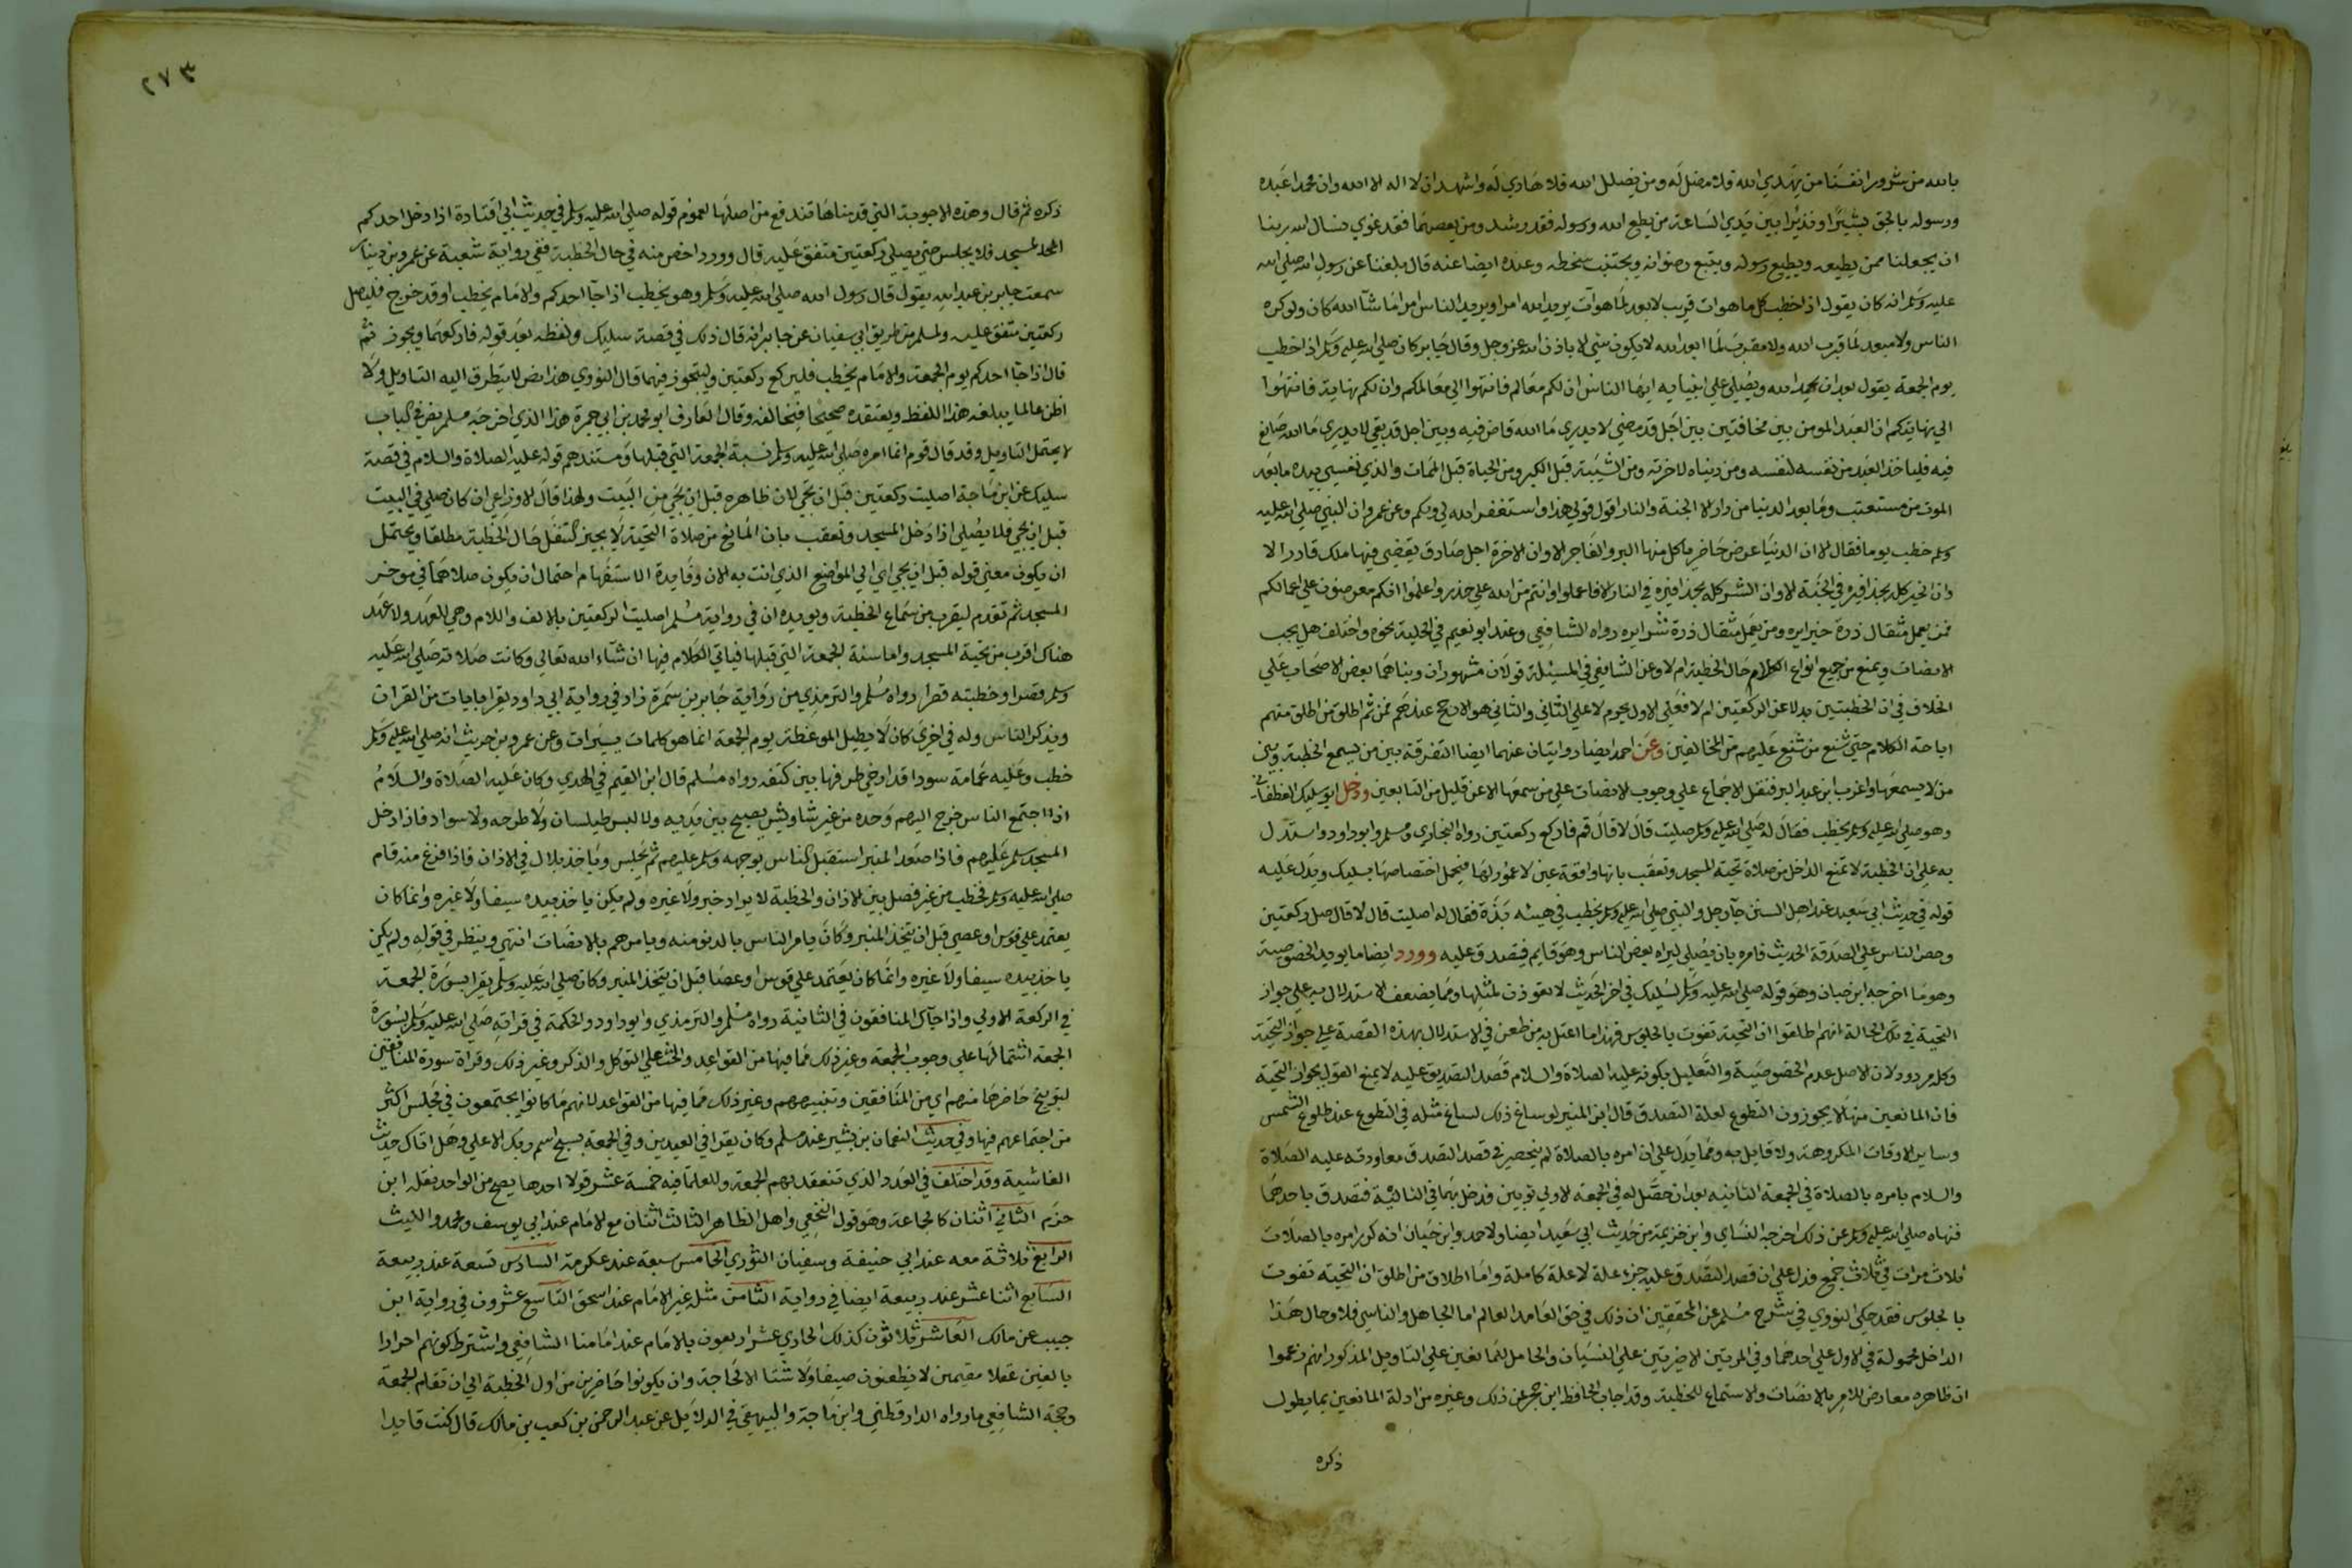 بالله من شرور انفسنا من يهدي الله فلا مضل له ومن يضلل الله فلا هادي له واشهد ان لا اله الا الله وان محمدا عبده
ورسوله بالحق بشيرا ونذيرا بين يدي الساعة من يطع الله ورسوله فقد رشد ومن يعصهما فقد غوي نسال الله ربنا
ان يجعلنا ممن يطيعه ويطيع رسوله ويتبع رضوانه ويجتنب سخطه وعنده ايضا عنه قال بلغنا عن رسول الله صلي الله
عليه وسلم انه كان يقول اذا خطب كل ما هو ات قريب لا بعد لما هو آت يريد الله امرا ويريد الناس امرا ما شآ الله كان ولو كره
الناس ولا مبعد لما قرب الله ولا مقرب لما ابعد الله لا يكون شي الا باذن الله عز وجل وقال جابر كان صلي الله عليه وسلم اذا خطب
يوم الجمعة يقول بعد ان يحمد الله ويصلي علي انبيايه ايها الناس ان لكم معالم فانتهوا الي معالمكم وان لكم نهاية فانتهوا
الي نهايتكم ان العبد المومن بين مخافتين بين اجل قد مضي لا يدري ما الله قاض فيه وبين اجل قد بقي لا يدري ما الله صانع
فيه فلياخذ العبد من نفسه لنفسه ومن دنياه لاخرته ومن الشيبة قبل الكبر ومن الحياة قبل الممات والذي نفسي بيده ما بعد
الموت من مستعتب وما بعد الدنيا من دار الا الجنة والنار اقول قولي هذا واستغفر الله لي ولكم وعن عمرو ان النبي صلي الله عليه
وسلم خطب يوما فقال الا ان الدنيا عرض حاضر ياكل منها البر والفاجر الا وان الاخرة اجل صادق يقضي فيها ملك قادر الا
وان الخير كله بحذافيره في الجنة الا وان الشر كله بحذافيره في النار الا فاعملوا وانتم من الله علي حذر واعلموا انكم معرضون علي اعمالكم
فمن يعمل مثقال ذرة خيرا يره ومن يعمل مثقال ذرة شرا يره رواه الشافعي وعند ابو نعيم في الحلية نحوه واختلف هل يجب
الانصات ويمنع من جميع انواع الكلام حال الخطبة ام لا وعن الشافعي في المسئلة قولان مشهوران وبناهما بعض الاصحاب علي
الخلاف في ان الخطبتين بدلا عن الركعتين ام لا فعلي الاول يحرم لا علي الثاني والثاني هو الارجح عندهم فمن ثم اطلق من اطلق منهم
اباحة الكلام حتي شنع من شنع عليهم من المخالفين وعن احمد ايضا روايتان عنهما ايضا التفرقة بين من يسمع الخطبة وبين
من لا يسمعها واغرب ابن عبد البر فنقل الاجماع علي وجوب الانصات علي من سمعها الا عن قليل من التابعين ودخل ابو سليك الغطفاني
وهو صلي الله عليه وسلم يخطب فقال له صلي الله عليه وسلم صليت قال لا قال قم فاركع ركعتين رواه البخاري ومسلم وابو داود واستدل
به علي ان الخطبة لا تمنع الداخل من صلاة تحية المسجد وتعقب بانها واقعة عين لا عموم لها فيحمل اختصاصها بسليك ويدل عليه
قوله في حديث ابي سعيد عند اهل السنن جآ رجل والنبي صلي الله عليه وسلم يخطب في هيئه بذة فقال له اصليت قال لا قال صل ركعتين
وحض الناس علي الصدقة الحديث فامره بان يصلي ليراه بعض الناس وهو قايم فيتصدق عليه وورد ايضا ما يويد الخصوصية
وهو ما اخرجه ابن حبان وهو قوله صلي الله عليه وسلم لسليك في اخر الحديث لا تعودن لمثلها ومما يضعف الاستدلال به علي جواز
التحية في تلك الحالة انهم اطلقوا ان التحية تفوت بالجلوس فهذا ما اعتل به من طعن في الاستدلال بهذه القصة علي جواز التحية
وكله مردود لان الاصل عدم الخصوصية والتعليل بكونه عليه الصلاة والسلام قصد التصدق عليه لا يمنع القول بجواز التحية
فان المانعين منها لا يجوزون التطوع لعلة التصدق قال ابن المنير لو ساغ ذلك لساغ مثله في التطوع عند طلوع الشمس
وساير الاوقات المكروهة ولا قايل به ومما يدل علي ان امره بالصلاة لم ينحصر في قصد التصدق معاودته عليه الصلاة
والسلام بامره بالصلاة في الجمعة الثانية بعد ان حصل له في الجمعة الاولي ثوبين فدخل بهما في الثانية فتصدق باحدهما
فنهاه صلي الله عليه وسلم عن ذلك اخرجه النساي وابن خزيمة من حديث ابي سعيد ايضا ولاحمد وابن حبان انه كرر امره بالصلات
ثلاث مرات في ثلاث جمع فدل علي ان قصد التصدق عليه جزء علة لا علة كاملة واما اطلاق من اطلق ان التحية تفوت
بالجلوس فقد حكي النووي في شرح مسلم عن المحققين ان ذلك في حق العامد العالم اما الجاهل والناسي فلا وحال هذا
الداخل محمولة في الاول علي احدهما وفي المرتين الاخرتين علي النسيان والحامل للمانعين علي التاويل المذكور انهم زعموا
ان ظاهره معارض للامر بالانصات والاستماع للخطبة وقد اجاب الحافظ ابن حجر عن ذلك وغيره من ادلة المانعين بما يطول
ذكره
٢٧٣
ذكره ثم قال وهذه الاجوبة التي قدمناها تندفع من اصلها لعموم قوله صلي الله عليه وسلم في حديث ابي قتادة اذا دخل احدكم
المسجد فلا يجلس حتي يصلي ركعتين متفق عليه قال وورد اخص منه في حال الخطبة ففي رواية شعبة عن عمرو بن دينار
سمعت جابر بن عبد الله يقول قال رسول الله صلي الله عليه وسلم وهو يخطب اذا جآ احدكم والامام يخطب او قد خرج فليصل
ركعتين متفق عليه ولمسلم من طريق ابي سفيان عن جابر انه قال ذلك في قصة سليك ولفظه بعد قوله فاركعهما وتجوز ثم
قال اذا جآ احدكم يوم الجمعة والامام يخطب فليركع ركعتين وليتجوز فيهما قال النووي هذا نص لا يتطرق اليه التاويل ولا
اظن عالما يبلغه هذا اللفظ ويعتقده صحيحا فيخالفه وقال العارف ابو محمد بن ابي جمرة هذا الذي اخرجه مسلم نص في الباب
لا يحتمل التاويل وقد قال قوم انما امره صلي الله عليه وسلم بسنة الجمعة التي قبلها ومستندهم قوله عليه الصلاة والسلام في قصة
سليك عن ابن ماجة اصليت ركعتين قبل ان تجي لان ظاهره قبل ان يجي من البيت ولهذا قال الاوزاعي ان كان صلي في البيت
قبل ان يجي فلا يصلي اذا دخل المسجد وتعقب بان المانع من صلاة التحية لا يجيز التنفل حال الخطبة مطلقا ويحتمل
ان يكون معني قوله قبل ان يجي اي الي المواضع الذي انت به الان وفايدة الاستفهام احتمال ان يكون صلاهما في موخر
المسجد ثم تقدم ليقرب من سماع الخطبة ويويده ان في رواية مسلم اصليت الركعتين بالالف واللام وهي للعهد ولا عهد
هناك اقرب من تحية المسجد واما سنة الجمعة التي قبلها فياتي الكلام فيها ان شآء الله تعالي وكانت صلاته صلي الله عليه
وسلم قصدا وخطبته قصرا رواه مسلم والترمذي من رواية جابر بن سمرة زاد في رواية ابي داود يقرا بايات من القران
ويذكر الناس وله في اخري كان لا يطيل الموعظة يوم الجمعة انما هو كلمات يسيرات وعن عمرو بن حريث انه صلي الله عليه وسلم
خطب وعليه عمامة سودا قد ارخي طرفها بين كتفه رواه مسلم قال ابن القيم في الهدي وكان عليه الصلاة والسلام
اذا اجتمع الناس خرج اليهم وحده من غير شاويش يصيح بين يديه ولا لبس طيلسان ولا طرحه ولا سواد فاذا دخل
المسجد سلم عليهم فاذا صعد المنبر استقبل الناس بوجهه وسلم عليهم ثم يجلس وياخذ بلال في الاذان فاذا فرغ منه قام
صلي الله عليه وسلم فخطب من غير فصل بين الاذان والخطبة لا يراد خبر ولا غيره ولم يكن ياخذ بيده سيفا ولا غيره وانما كان
يعتمد علي قوس او عصي قبل ان يتخذ المنبر وكان يامر الناس بالدنو منه ويامرهم بالانصات انتهي وينظر في قوله ولم يكن
ياخذ بيده سيفا ولا غيره وانما كان يعتمد علي قوس او عصا قبل ان يتخذ المنبر وكان صلي الله عليه وسلم يقرا بسورة الجمعة
في الركعة الاولي واذا جآك المنافقون في الثانية رواه مسلم والترمذي وابو داود والحكمة في قراته صلي الله عليه وسلم بسورة
الجمعة اشتمالها علي وجوب الجمعة وغير ذلك مما فيها من القواعد والحث علي التوكل والذكر وغير ذلك وقراة سورة المنافقين
لتوبيخ حاضرها منهم اي من المنافقين وتنبيههم وغير ذلك مما فيها من القواعد لانهم ما كانوا يجتمعون في مجلس اكثر
من اجتماعهم فيها وفي حديث النعمان بن بشير عند مسلم وكان يقرا في العيدين وفي الجمعة بسبح اسم ربك الاعلي وهل اتاك حديث
الغاشية وقد اختلف في العدد الذي تنعقد بهم الجمعة وللعلما فيه خمسة عشر قولا احدها يصح من الواحد نقله ابن
حزم الثاني اثنان كالجاعة وهو قول النخعي واهل الظاهر الثالث اثنان مع الامام عند ابي يوسف ومحمد والليث
الرابع ثلاثة معه عند ابي حنيفة وسفيان الثوري الخامس سبعة عند عكرمة السادس تسعة عند ربيعة
السابع اثنا عشر عند ربيعة ايضا في رواية الثامن مثله غير الامام عند اسحق التاسع عشرون في رواية ابن
حبيب عن مالك العاشر ثلاثون كذلك الحادي عشر اربعون بالامام عند امامنا الشافعي واشترط كونهم احرارا
بالغين عقلا مقيمين لا يظعنون صيفا ولا شتا الا لحاجة وان يكونوا حاضرين من اول الخطبة الي ان تقام الجمعة
وحجة الشافعي ما رواه الدارقطني وابن ماجة والبيهقي في الدلايل عن عبد الرحمن بن كعب بن مالك قال كنت قايدا